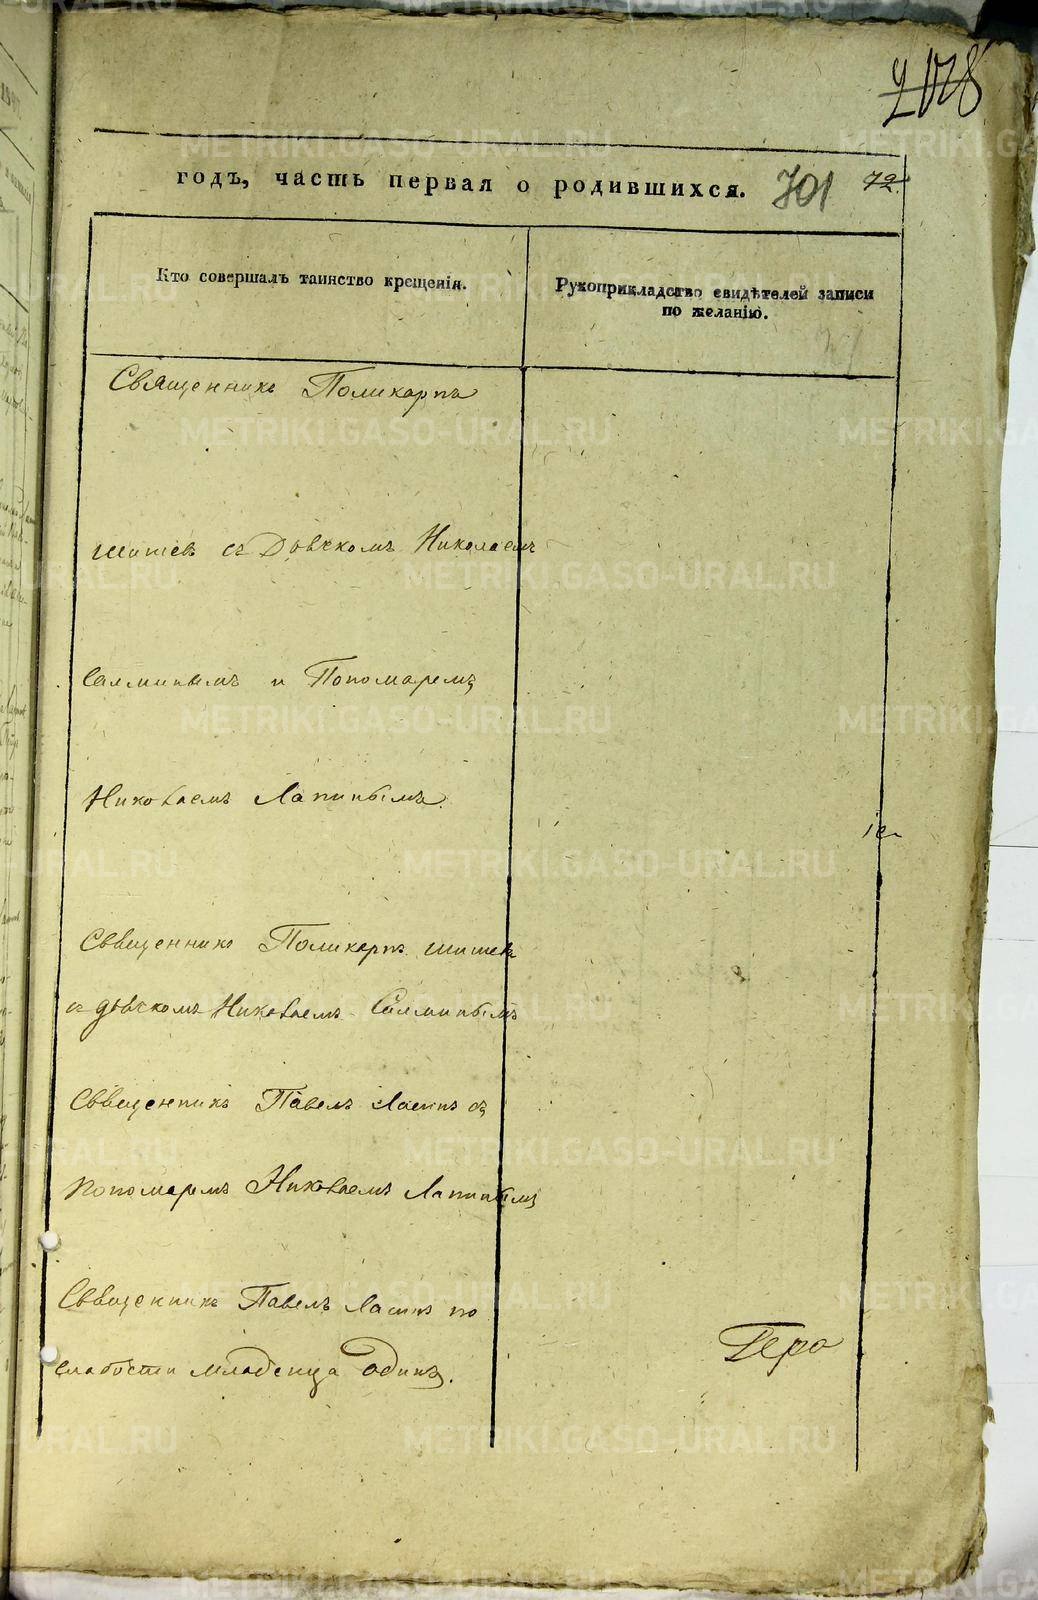 годъ, часть первая о родившихся. 701 72
Кто совершалъ таинство крещенія.
Рукоприкладство свидѣтелей записи
по желанію.
Священникъ Поликарпъ
Шишевъ съ Дьячкомъ Николаемъ
Саминымъ и Пономаремъ
Николаемъ Лапинымъ.
Священникъ Поликарпъ Шишевъ
съ дьячкомъ Николаемъ Саминымъ
Священникъ Павелъ Ласинъ съ
пономаремъ Николаемъ Лапинымъ
Священникъ Павелъ Ласинъ по
слабости младенца одинъ.
METRIKI.GASO-URAL.RU